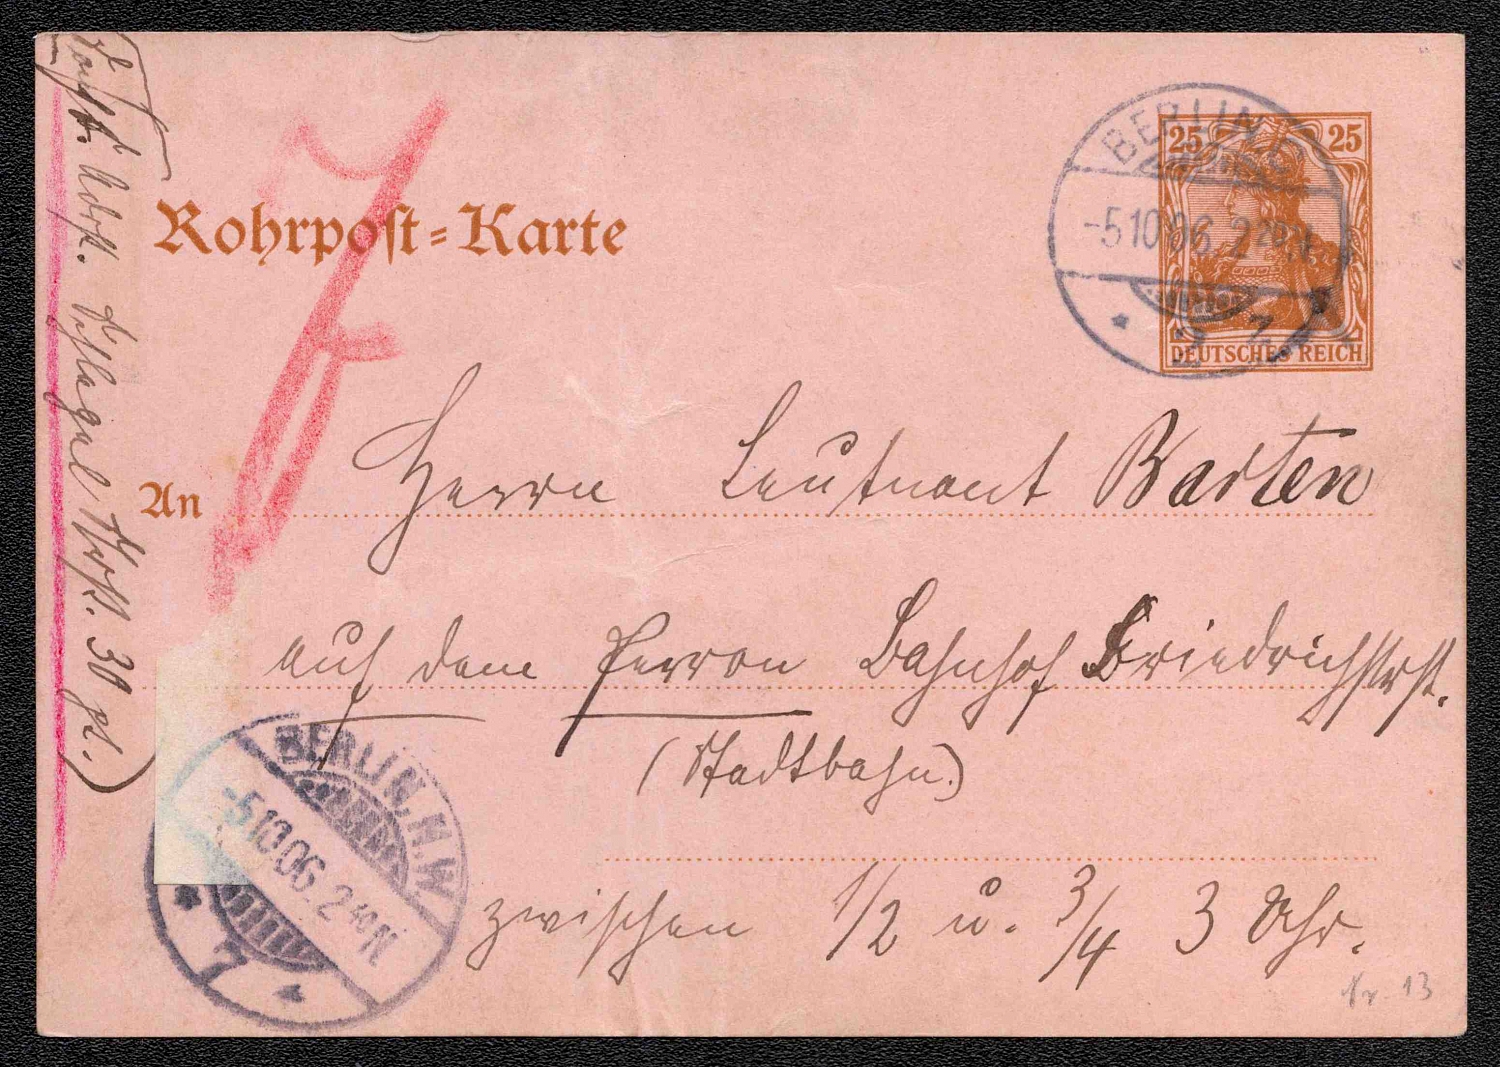 Rohrpost-Karte
25 25
DEUTSCHES REICH
BERLIN C
-5.10.06. 2 20 N.
* 2 z.
An Herrn Leutnant Barten
auf dem Perron Bahnhof Friedrichstrst.
(Stadtbahn.)
zwischen 1/2 u. 3/4 3 Uhr.
BERLIN, N.W.
-5.10.06. 2 40 N.
* 7 *
Schlegel Str. 30
13